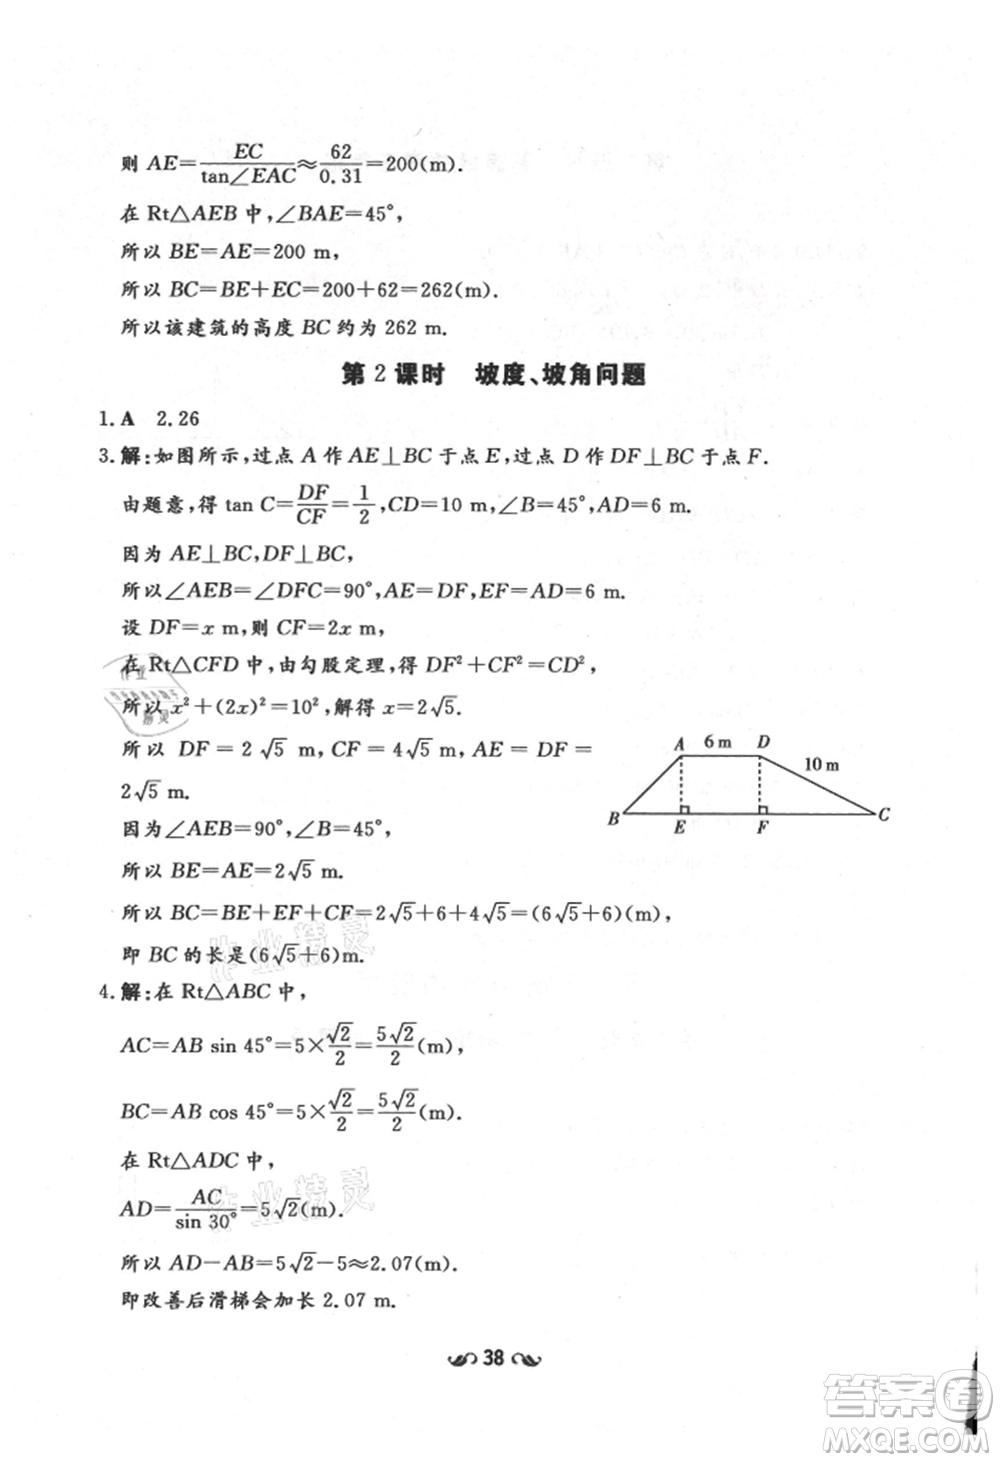 则 AE=EC/tan∠EAC≈62/0.31=200(m).
在 Rt△AEB 中,∠BAE=45°,
所以 BE=AE=200 m,
所以 BC=BE+EC=200+62=262(m).
所以该建筑的高度 BC 约为 262 m.
第 2 课时 坡度、坡角问题
1.A 2.26
3.解:如图所示,过点 A 作 AE⊥BC 于点 E,过点 D 作 DF⊥BC 于点 F.
由题意,得 tan C=DF/CF=1/2,CD=10 m,∠B=45°,AD=6 m.
因为 AE⊥BC,DF⊥BC,
所以∠AEB=∠DFC=90°,AE=DF,EF=AD=6 m.
设 DF=x m,则 CF=2x m,
在 Rt△CFD 中,由勾股定理,得 DF²+CF²=CD²,
所以 x²+(2x)²=10²,解得 x=2√5.
所以 DF=2√5 m,CF=4√5 m,AE=DF=
2√5 m.
因为∠AEB=90°,∠B=45°,
所以 BE=AE=2√5 m.
所以 BC=BE+EF+CF=2√5+6+4√5=(6√5+6)(m),
即 BC 的长是(6√5+6)m.
A 6 m D
10 m
B E F C
4.解:在 Rt△ABC 中,
AC=AB sin 45°=5×√2/2=5√2/2(m),
BC=AB cos 45°=5×√2/2=5√2/2(m).
在 Rt△ADC 中,
AD=AC/sin 30°=5√2(m).
所以 AD-AB=5√2-5≈2.07(m).
即改善后滑梯会加长 2.07 m.
38
作业精灵
作业精灵
答案圈
MXQE.COM